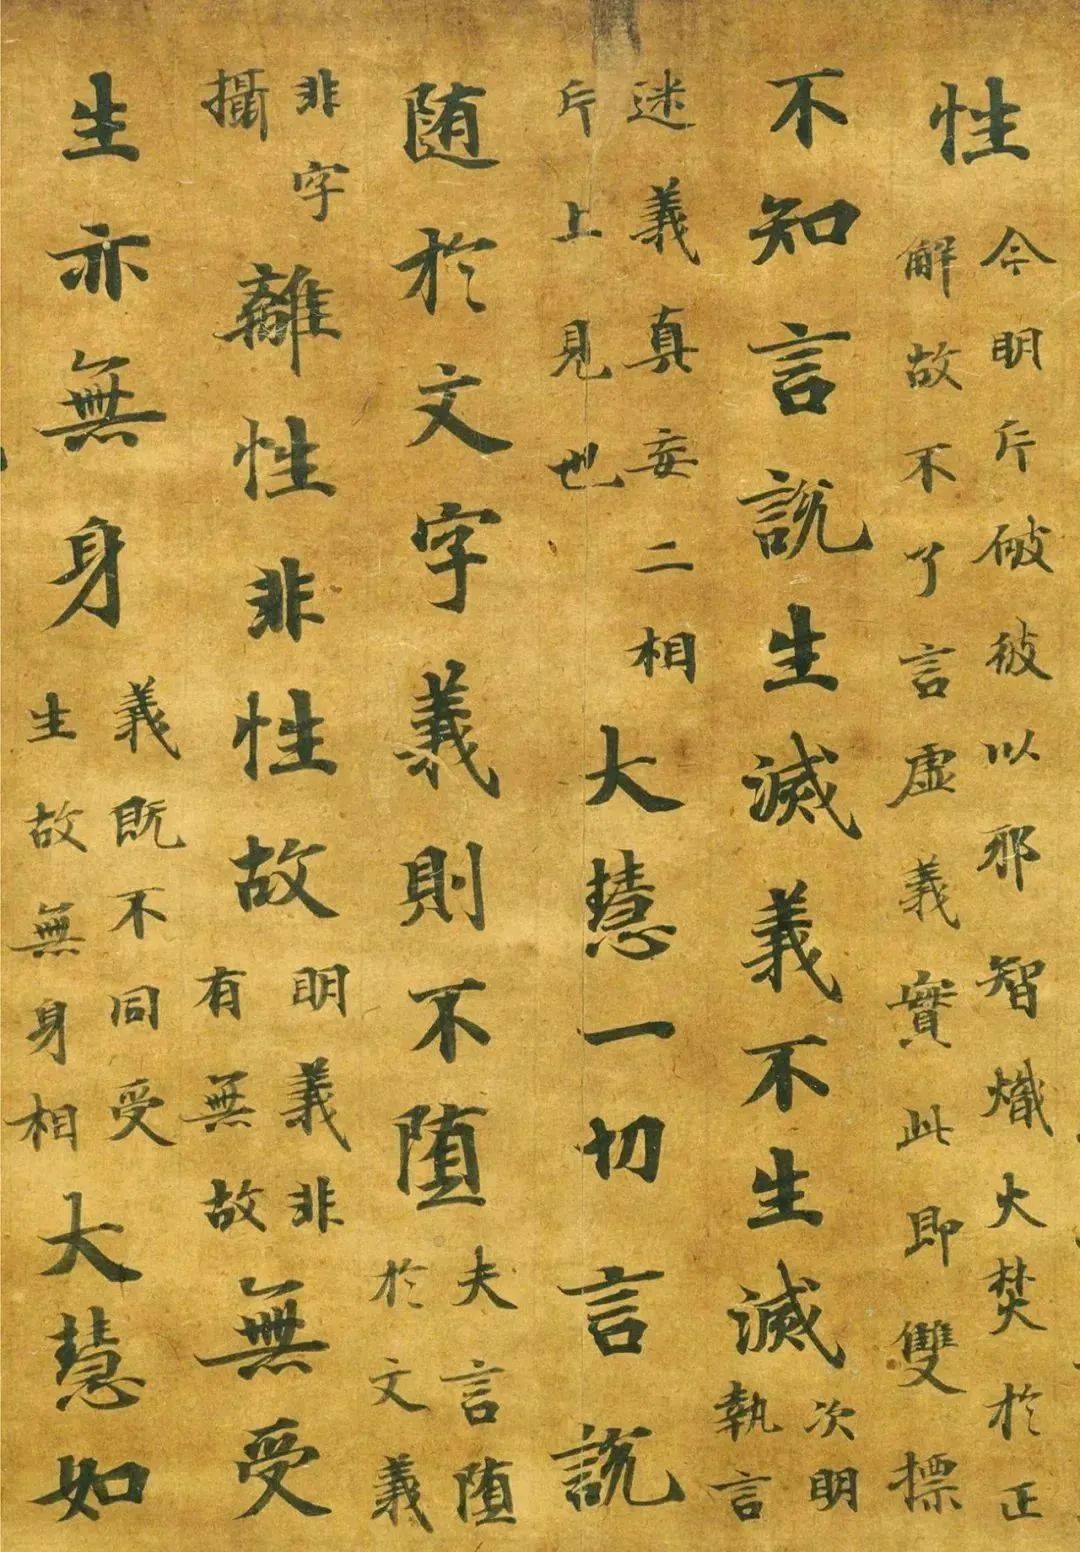 性今明斥破彼以邪智熾火焚於正解故不了言虛義實此即雙標
不知言說生滅義不生滅次明執言
迷義真妄二相斥上見也大慧一切言說
堕於文字義則不墮夫言堕於文義
非字攝離性非性故明義非有無故無受
生亦無身義既不同受生故無身相大慧如